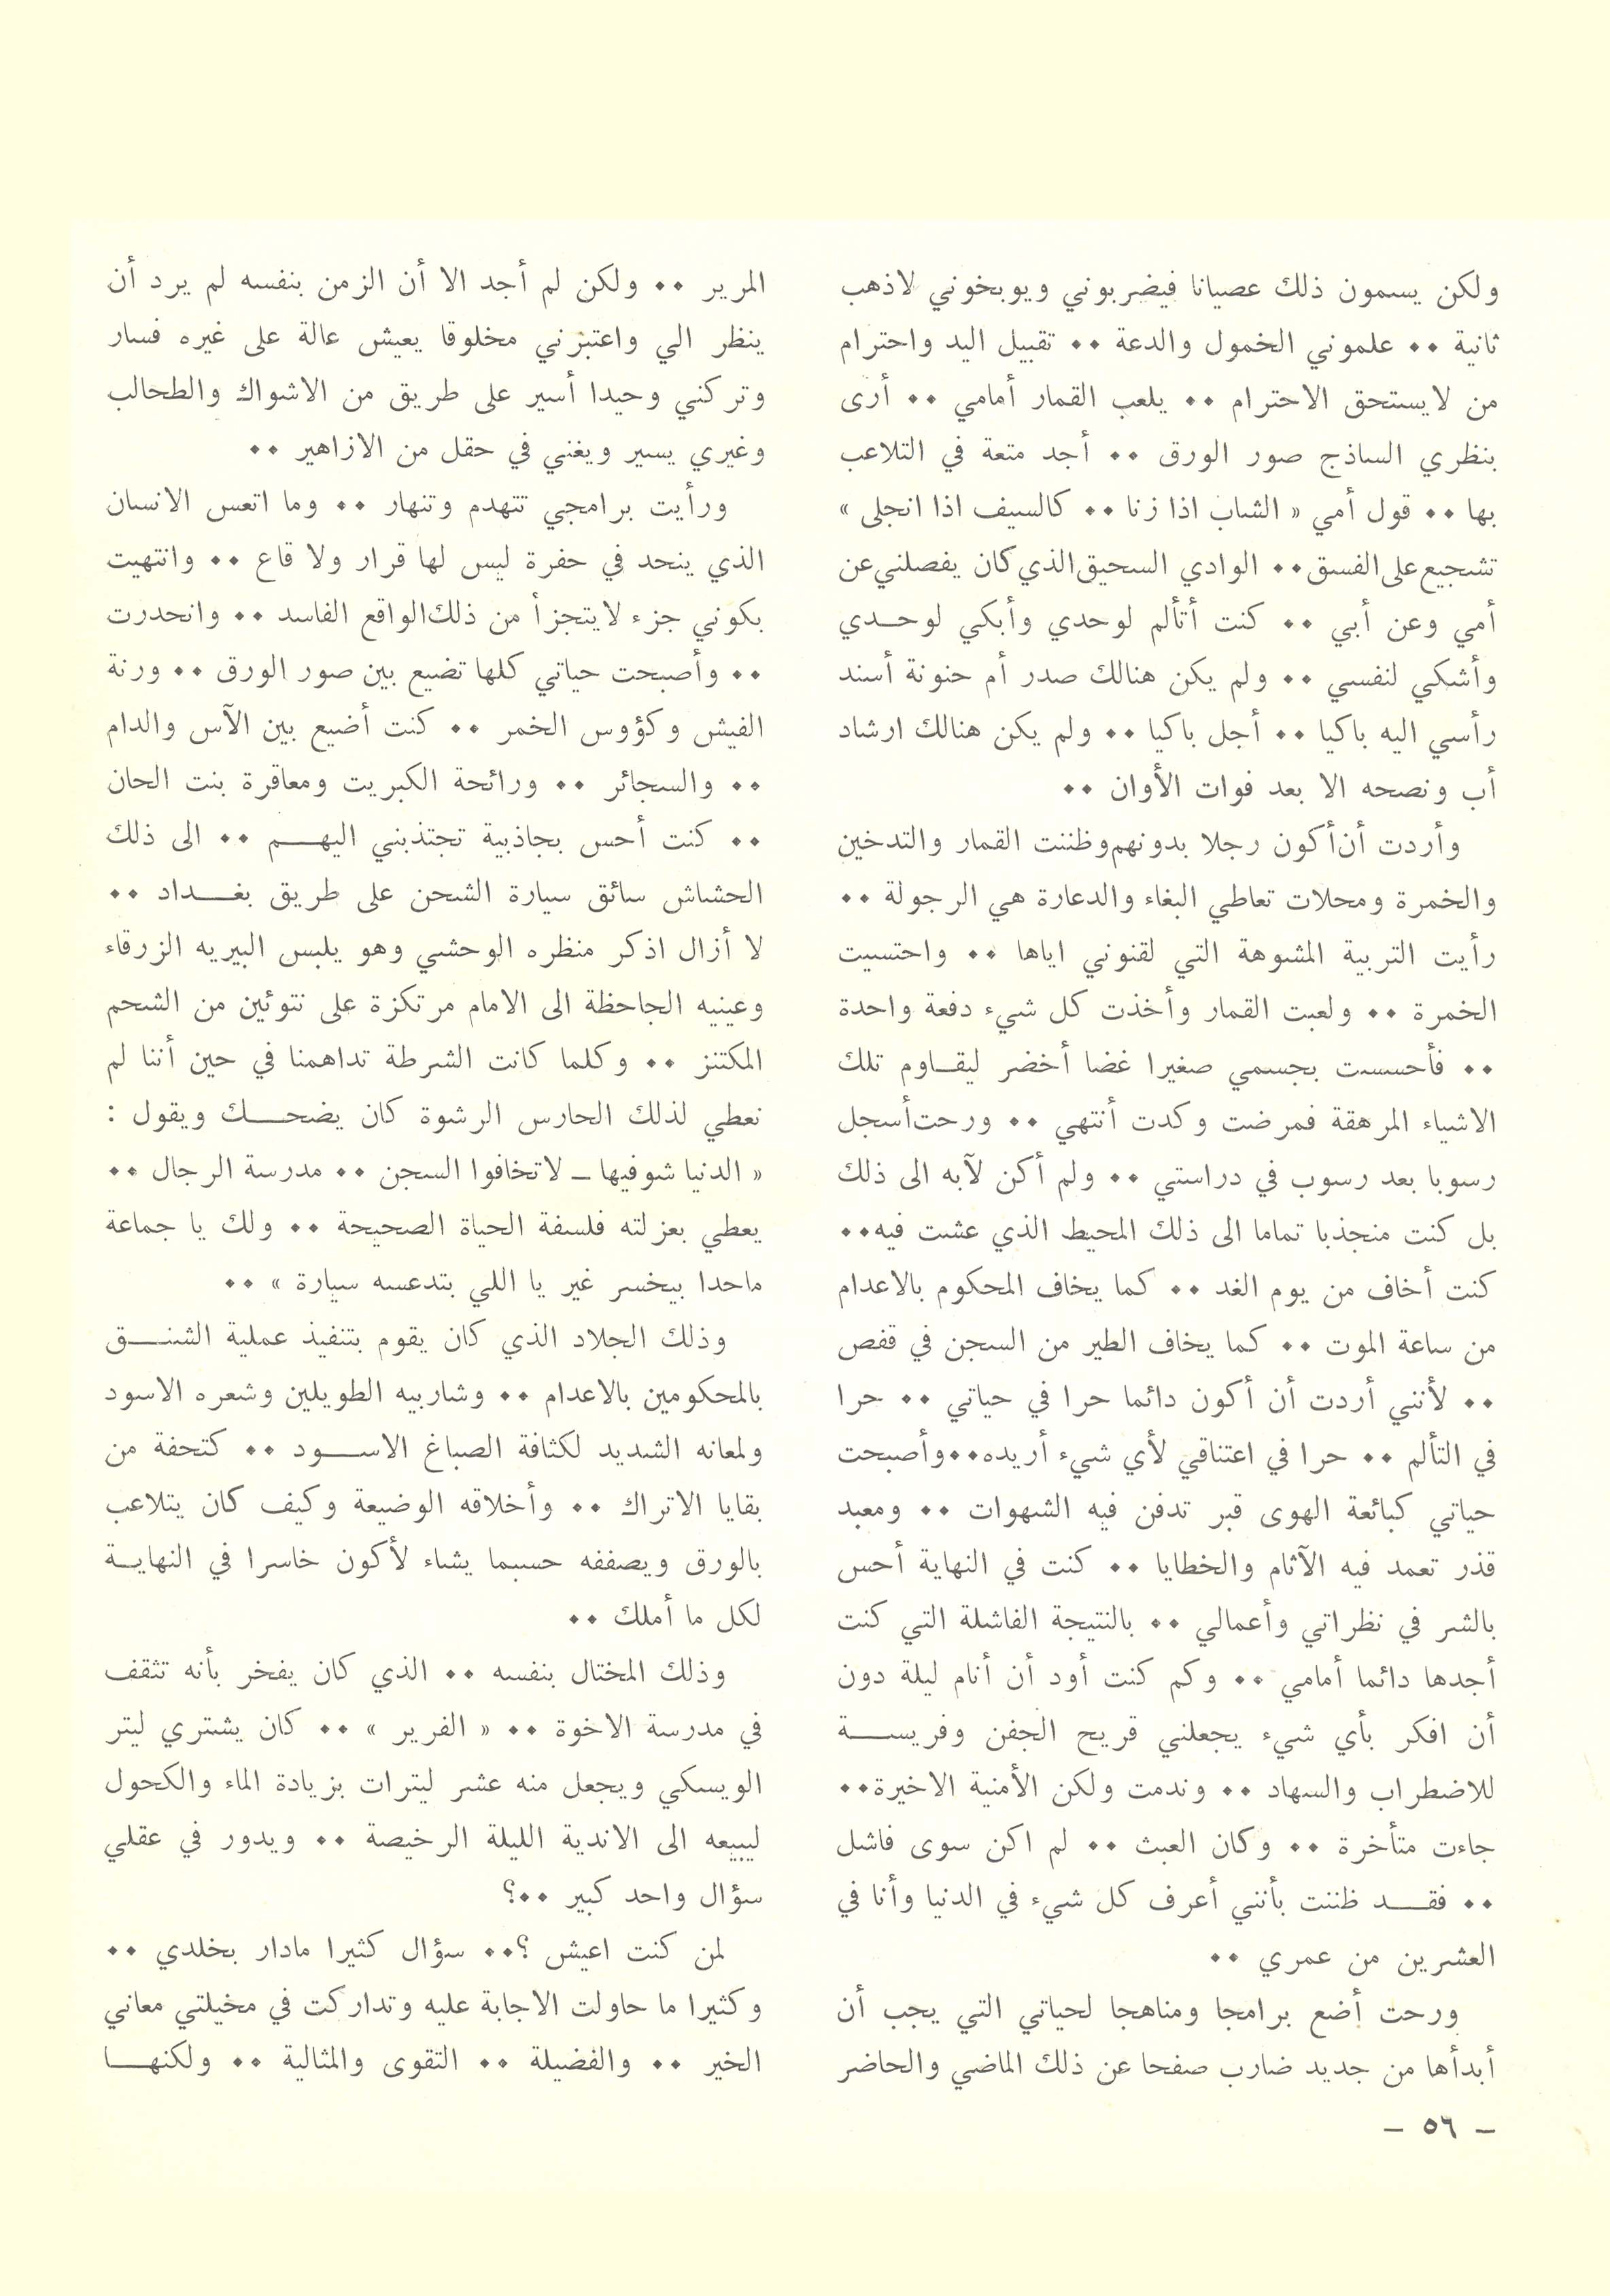 ولكن يسمون ذلك عصيانا فيضربوني ويوبخوني لاذهب
ثانية ٠٠ علموني الخمول والدعة ٠٠ تقبيل اليد واحترام
من لايستحق الاحترام ٠٠ يلعب القمار أمامي ٠٠ أرى
بنظري الساذج صور الورق ٠٠ أجد متعة في التلاعب
بها ٠٠ قول أمي « الشاب اذا زنا ٠٠ كالسيف اذا انجلى »
تشجيع على الفسق ٠٠ الوادي السحيق الذي كان يفصلني عن
أمي وعن أبي ٠٠ كنت أتألم لوحدي وأبكي لوحدي
وأشكي لنفسي ٠٠ ولم يكن هنالك صدر أم حنونة أسند
رأسي اليه باكيا ٠٠ أجل باكيا ٠٠ ولم يكن هنالك ارشاد
أب ونصحه الا بعد فوات الأوان ٠٠
وأردت أن أكون رجلا بدونهم وظننت القمار والتدخين
والخمرة ومحلات تعاطي البغاء والدعارة هي الرجولة ٠٠
رأيت التربية المشوهة التي لقنوني اياها ٠٠ واحتسيت
الخمرة ٠٠ ولعبت القمار وأخذت كل شيء دفعة واحدة
٠٠ فأحسست بجسمي صغيرا غضا أخضر ليقاوم تلك
الاشياء المرهقة فمرضت وكدت أنتهي ٠٠ ورحت أسجل
رسوبا بعد رسوب في دراستي ٠٠ ولم أكن لآبه الى ذلك
بل كنت منجذبا تماما الى ذلك المحيط الذي عشت فيه ٠٠
كنت أخاف من يوم الغد ٠٠ كما يخاف المحكوم بالاعدام
من ساعة الموت ٠٠ كما يخاف الطير من السجن في قفص
٠٠ لأنني أردت أن أكون دائما حرا في حياتي ٠٠ حرا
في التألم ٠٠ حرا في اعتناقي لأي شيء أريده ٠٠ وأصبحت
حياتي كبائعة الهوى قبر تدفن فيه الشهوات ٠٠ ومعبد
قذر تعمد فيه الآثام والخطايا ٠٠ كنت في النهاية أحس
بالشر في نظراتي وأعمالي ٠٠ بالنتيجة الفاشلة التي كنت
أجدها دائما أمامي ٠٠ وكم كنت أود أن أنام ليلة دون
أن افكر بأي شيء يجعلني قريح الجفن وفريسة
للاضطراب والسهاد ٠٠ وندمت ولكن الأمنية الاخيرة ٠٠
جاءت متأخرة ٠٠ وكان العبث ٠٠ لم اكن سوى فاشل
٠٠ فقد ظننت بأنني أعرف كل شيء في الدنيا وأنا في
العشرين من عمري ٠٠
ورحت أضع برامجا ومناهجا لحياتي التي يجب أن
أبدأها من جديد ضارب صفحا عن ذلك الماضي والحاضر
المرير ٠٠ ولكن لم أجد الا أن الزمن بنفسه لم يرد أن
ينظر الي واعتبرني مخلوقا يعيش عالة على غيره فسار
وتركني وحيدا أسير على طريق من الاشواك والطحالب
وغيري يسير ويغني في حقل من الازاهير ٠٠
ورأيت برامجي تتهدم وتنهار ٠٠ وما اتعس الانسان
الذي ينحد في حفرة ليس لها قرار ولا قاع ٠٠ وانتهيت
بكوني جزء لايتجزأ من ذلك الواقع الفاسد ٠٠ وانحدرت
٠٠ وأصبحت حياتي كلها تضيع بين صور الورق ٠٠ ورنة
الفيش وكؤوس الخمر ٠٠ كنت أضيع بين الآس والدام
٠٠ والسجائر ٠٠ ورائحة الكبريت ومعاقرة بنت الحان
٠٠ كنت أحس بجاذبية تجتذبني اليهم ٠٠ الى ذلك
الحشاش سائق سيارة الشحن على طريق بغداد ٠٠
لا أزال اذكر منظره الوحشي وهو يلبس البيريه الزرقاء
وعينيه الجاحظة الى الامام مرتكزة على نتوئين من الشحم
المكتنز ٠٠ وكلما كانت الشرطة تداهمنا في حين أننا لم
نعطي لذلك الحارس الرشوة كان يضحك ويقول :
« الدنيا شوفيها ــ لاتخافوا السجن ٠٠ مدرسة الرجال ٠٠
يعطي بعزلته فلسفة الحياة الصحيحة ٠٠ ولك يا جماعة
ماحدا بيخسر غير يا اللي بتدعسه سيارة » ٠٠
وذلك الجلاد الذي كان يقوم بتنفيذ عملية الشنق
بالمحكومين بالاعدام ٠٠ وشاربيه الطويلين وشعره الاسود
ولمعانه الشديد لكثافة الصباغ الاسود ٠٠ كتحفة من
بقايا الاتراك ٠٠ وأخلاقه الوضيعة وكيف كان يتلاعب
بالورق ويصففه حسبما يشاء لأكون خاسرا في النهاية
لكل ما أملك ٠٠
وذلك المختال بنفسه ٠٠ الذي كان يفخر بأنه تثقف
في مدرسة الاخوة ٠٠ « الفرير » ٠٠ كان يشتري ليتر
الويسكي ويجعل منه عشر ليترات بزيادة الماء والكحول
ليبيعه الى الاندية الليلة الرخيصة ٠٠ ويدور في عقلي
سؤال واحد كبير ٠٠؟
لمن كنت اعيش ؟٠٠ سؤال كثيرا مادار بخلدي ٠٠
وكثيرا ما حاولت الاجابة عليه وتداركت في مخيلتي معاني
الخير ٠٠ والفضيلة ٠٠ التقوى والمثالية ٠٠ ولكنها
– ٥٦ –